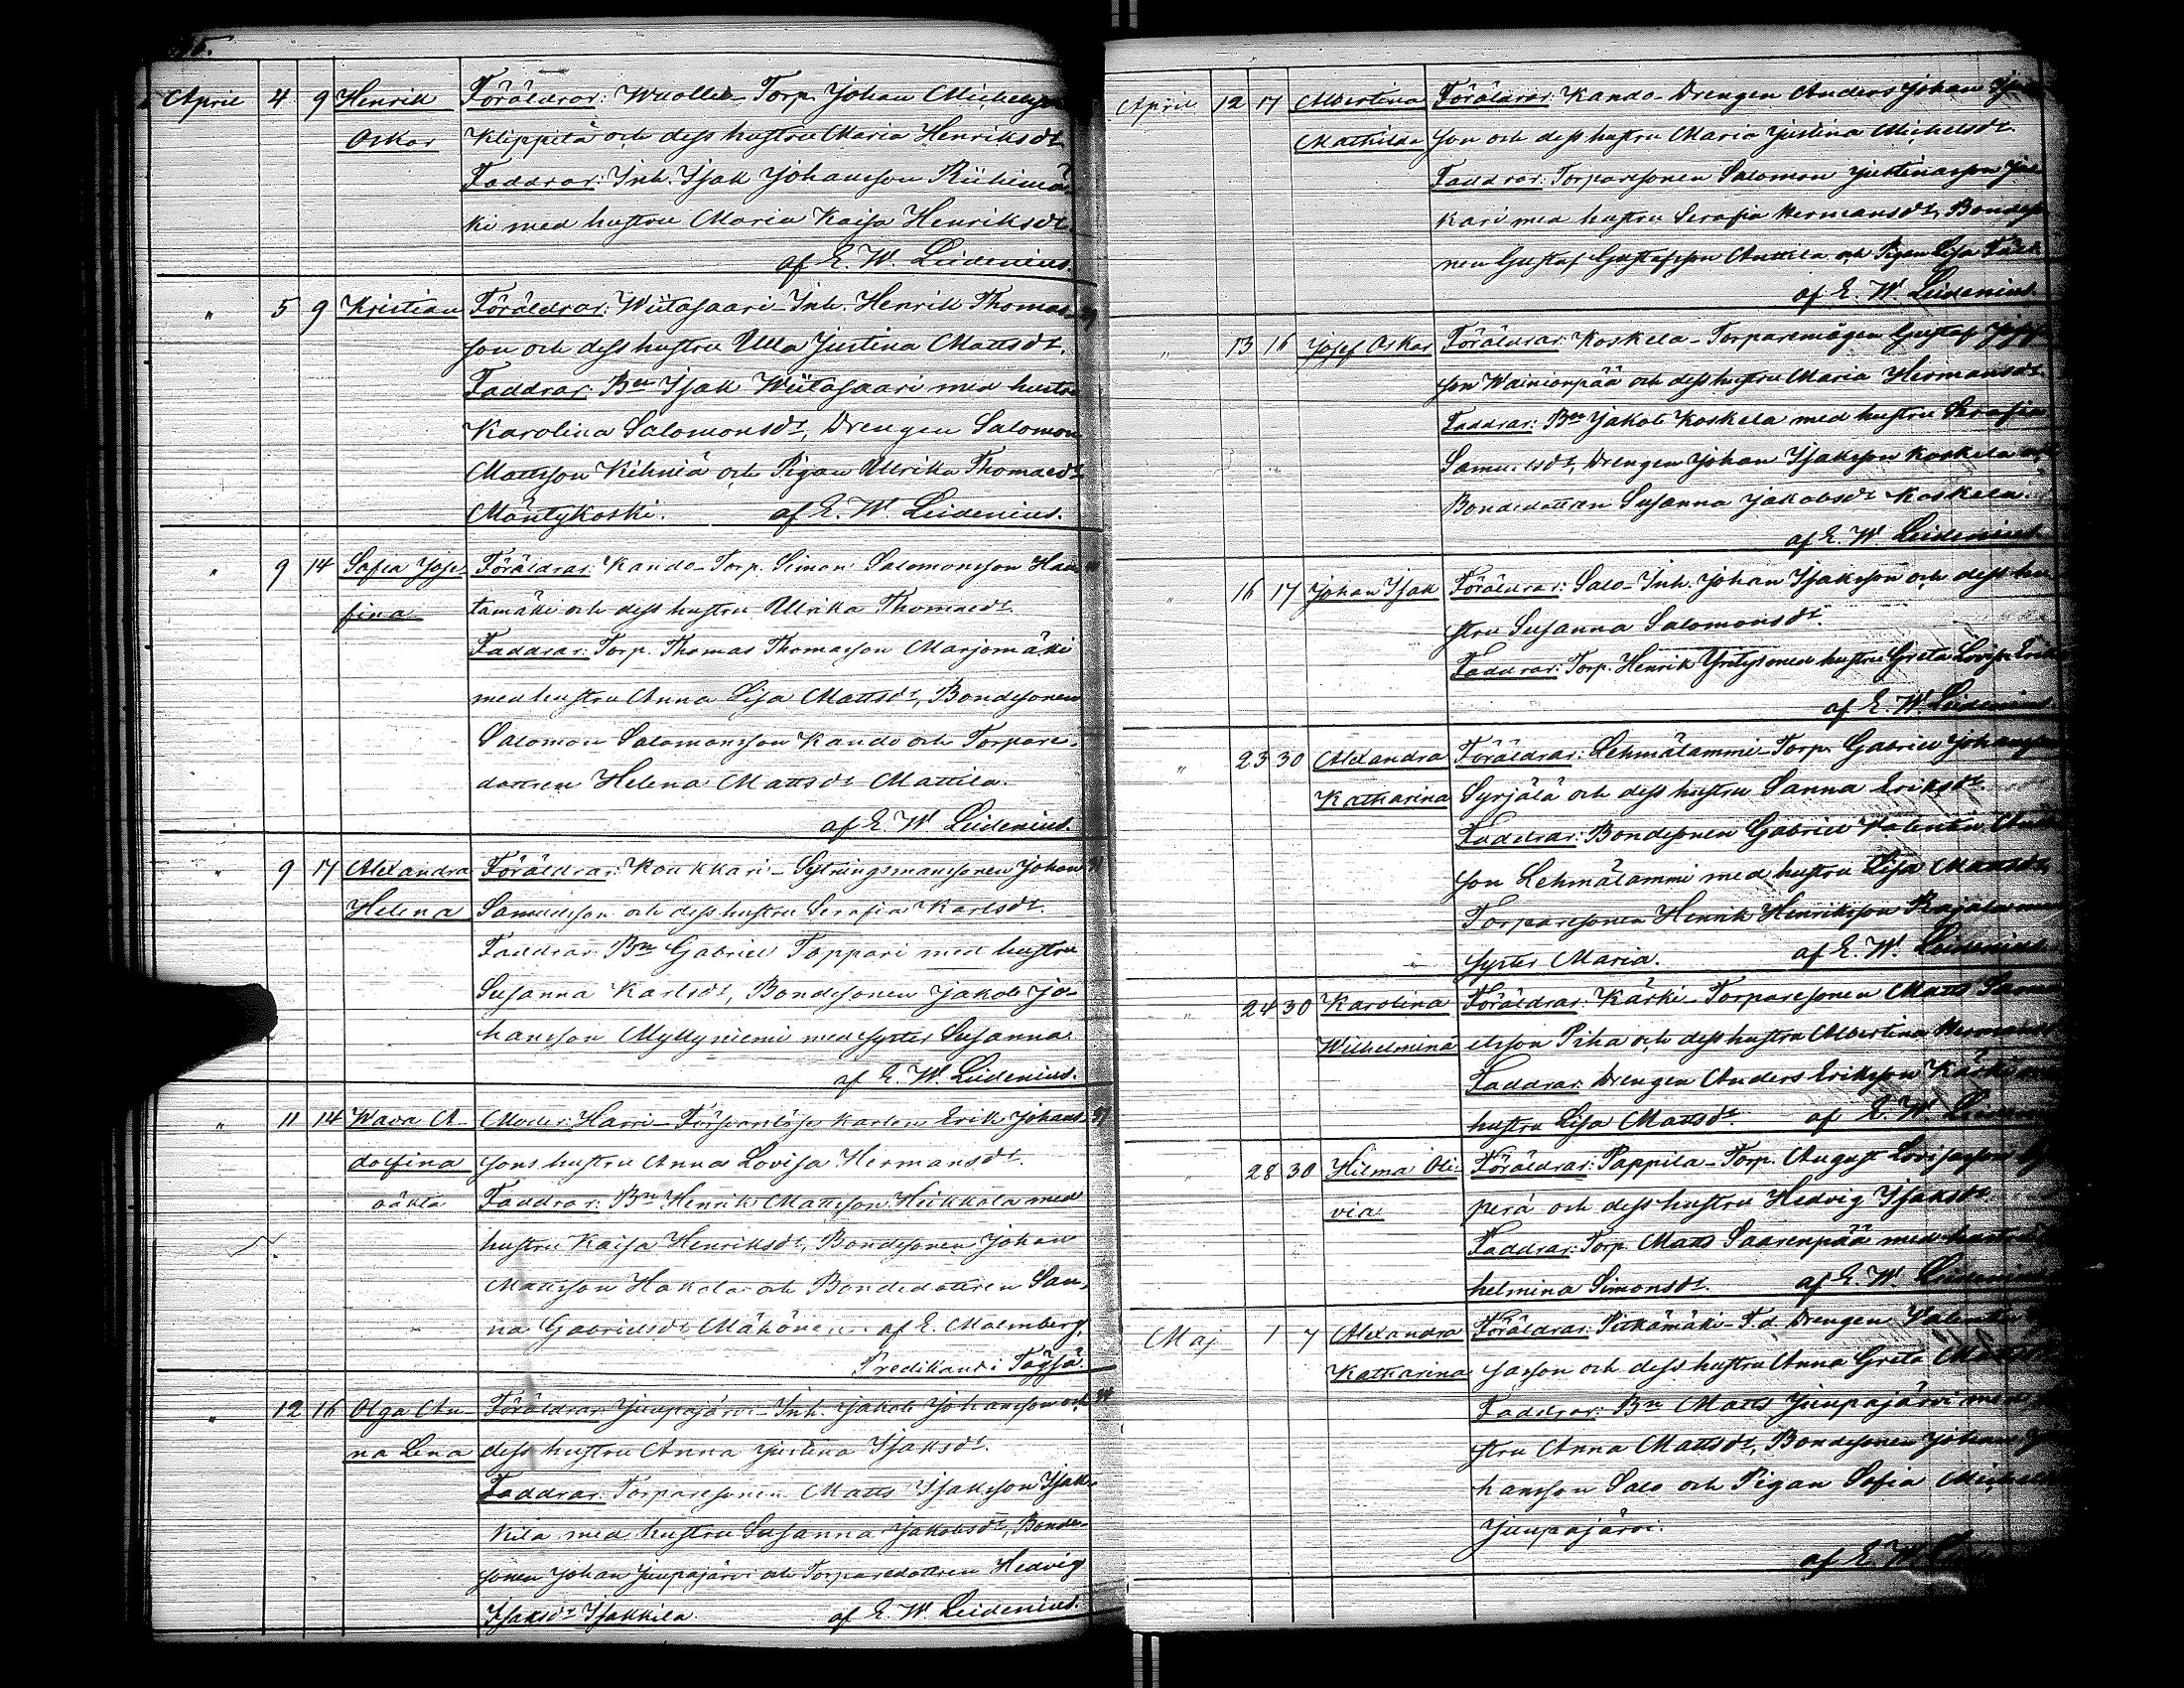 April 4 9 Henrik Föräldrar: Wuolle-Torp. Johan Michelsson
Oskar Klippilä och dess hustru Maria Henriksdr.
Faddrar: Inh. Isak Johansson Riihimä-
ki med hustru Maria Kaisa Henriksdr.
af E. W. Leidenius.
" 5 9 Kristian Föräldrar: Wiitasaari-Inh. Henrik Thomas-
son och dess hustru Ulla Justina Mattsdr.
Faddrar: Bn Isak Wiitasaari med hustru
Karolina Salomonsdr, Drengen Salomon
Mattsson Kihniä och Pigan Ulrika Thomasdr
Mäntykoski. af E. W. Leidenius.
" 9 14 Sofia Jose- Föräldrar: Kando-Torp. Simon Salomonsson Hau-
fina tamäki och dess hustru Ulrika Thomasdr.
Faddrar: Torp. Thomas Thomasson Marjomäki
med hustru Anna Lisa Mattsdr, Bondesonen
Salomon Salomonsson Kando och Torpare-
dottren Helena Mattsdr Mattila.
af E. W. Leidenius.
" 9 17 Alexandra Föräldrar: Koukkari-Sytningsmanssonen Johan
Helena Samuelsson och dess hustru Serafia Karlsdr.
Faddrar: Bn Gabriel Toppari med hustru
Susanna Karlsdr, Bondesonen Jakob Jo-
hansson Myllyniemi med syster Susanna.
af E. W. Leidenius.
" 11 14 Wava A- Moder: Harri-Försvarslöse karlen Erik Johans-
dolfina sons hustru Anna Lovisa Hermansdr.
oäkta Faddrar: Bn Henrik Mattsson Heikkola med
hustru Kaisa Henriksdr, Bondesonen Johan
Mattsson Hakola och Bondedottren San-
na Gabrielsdr Mäkönen af E. Malmberg,
Predikant i Töysä.
" 12 16 Olga An- Föräldrar: Juupajärvi-Inh. Jakob Johansson och
na Lena dess hustru Anna Justina Isaksdr.
Faddrar: Torparesonen Matts Isaksson Isak-
kila med hustru Susanna Jakobsdr, Bonde-
sonen Johan Juupajärvi och Torparedottren Hedvig
Isaksdr Isakkila. af E. W. Leidenius.
April 12 17 Albertina Föräldrar: Kando-Drengen Anders Johan
Mathilda son och dess hustru Maria Justina Michelsdr.
Faddrar: Torparesonen Salomon Justinasson
kari med hustru Serafia Hermansdr, Bondeso-
nen Gustaf Gustafsson Anttila och Pigan Lisa
af E. W. Leidenius.
" 13 16 Josef Oskar Föräldrar: Koskela-Torparemågen Gustaf Josef-
son Wainionpää och dess hustru Maria Hermansdr.
Faddrar: Bn Jakob Koskela med hustru Serafia
Samuelsdr, Drengen Johan Isaksson Koskela och
Bondedottran Susanna Jakobsdr Koskela.
af E. W. Leidenius.
" 16 17 Johan Isak Föräldrar: Salo-Inh. Johan Isaksson och dess hu-
stru Susanna Salomonsdr.
Faddrar: Torp. Henrik Yritys med hustru Greta Lovisa
af E. W. Leidenius.
" 23 30 Alexandra Föräldrar: Lehmälammi-Torp. Gabriel Johansson
Katharina Syrjälä och dess hustru Sanna Eriksdr.
Faddrar: Bondesonen Gabriel Valentin
son Lehmälammi med hustru Lisa Mattsdr,
Torparesonen Henrik Henriksson Rajala med
syster Maria. af E. W. Leidenius.
" 24 30 Karolina Föräldrar: Kärki-Torparesonen Matts Samu-
Wilhelmina elsson Piha och dess hustru Albertina Hermansdr
Faddrar: Drengen Anders Eriksson Kärki med
hustru Lisa Mattsdr. af E. W. Leidenius
" 28 30 Hilma Oli- Föräldrar: Pappila-Torp. August Lovisasson
via perä och dess hustru Hedvig Isaksdr
Faddrar: Torp. Matts Saarenpää med hustru
helmina Simonsdr. af E. W. Leidenius
Maj 1 7 Alexandra Föräldrar: Pitkämäki-F.d. Drengen Valentin
Katharina sasson och dess hustru Anna Greta
Faddrar: Bn Matts Juupajärvi med hu-
stru Anna Mattsdr, Bondesonen Johan Jo-
hansson Salo och Pigan Sofia
Juupajärvi.
af E. W.